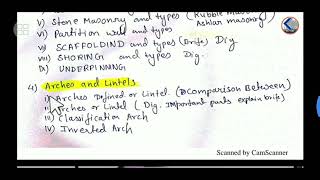 v) Stone Masonry and types (Rubble Masonry
Ashlar masonry)
vi) Partition wall and types
vii) SCAFFOLDIND and types (Brife) Dig.
viii) SHORING and types Dig.
ix) UNDERPINNING
4) Arches and Lintels
i) Arches Defined or Lintel. (Comparison Between)
ii) Arches or Lintel (Dig. Important parts explain brife)
iii) Classification Arch
iv) Inverted Arch
Scanned by CamScanner